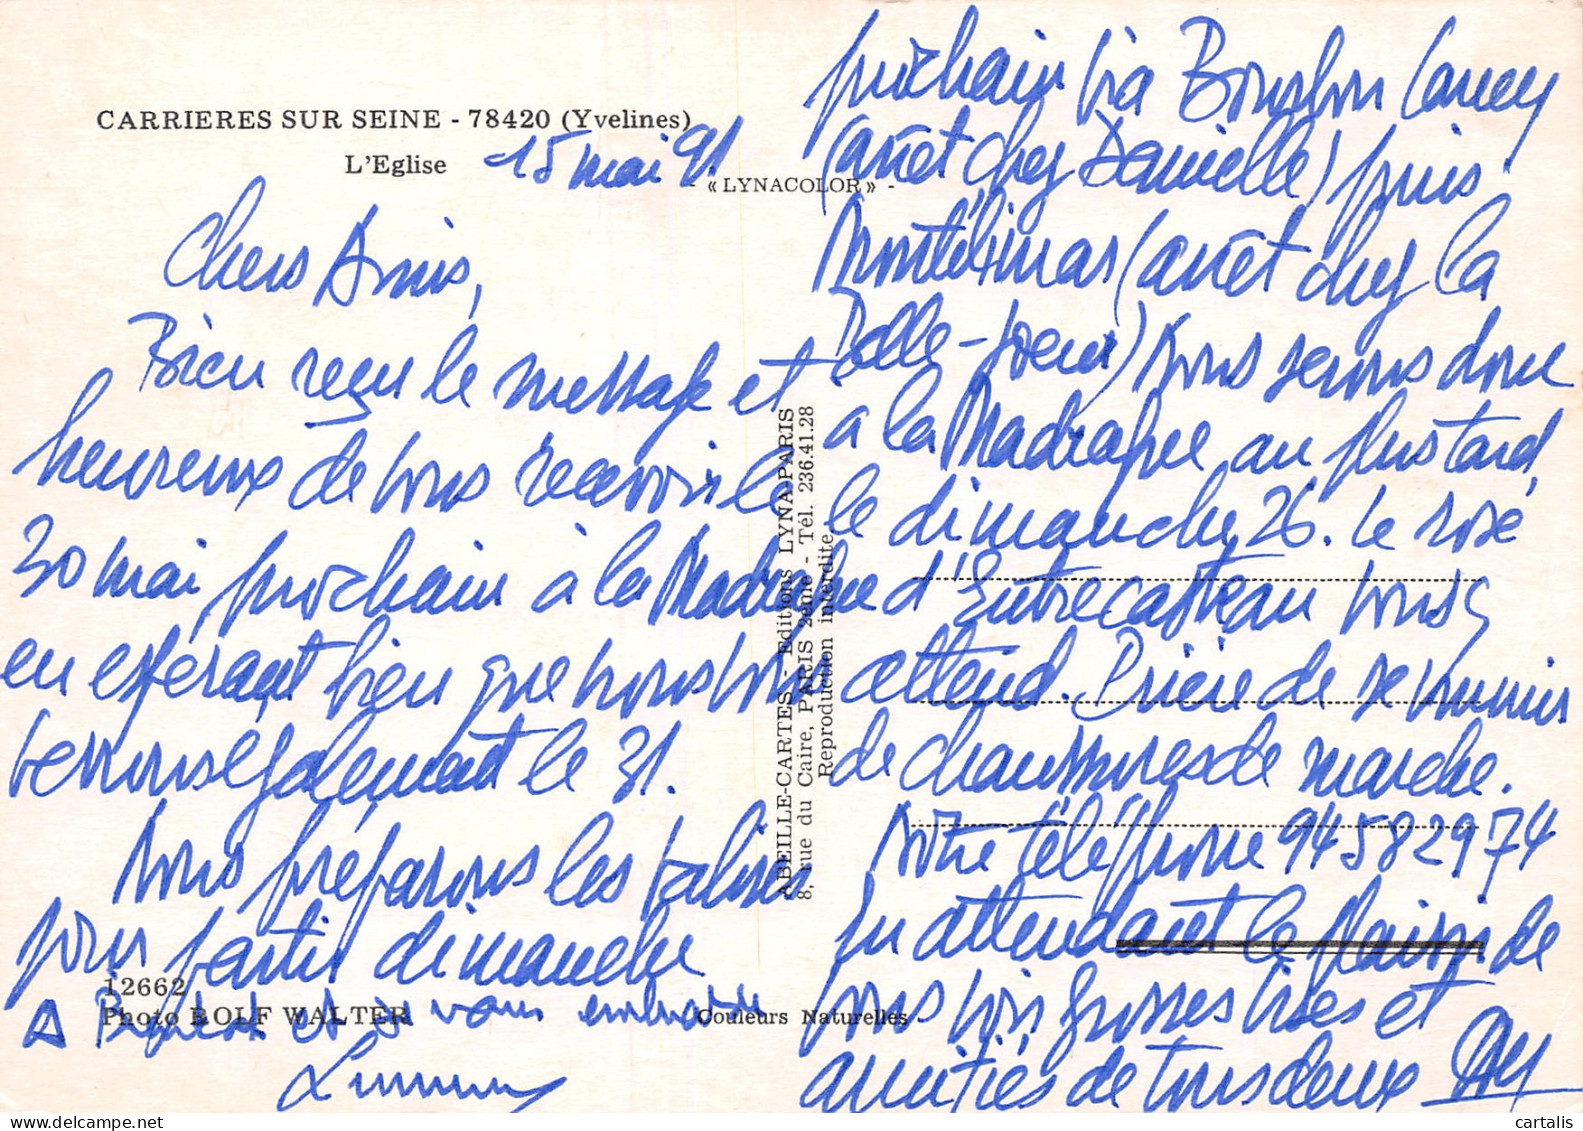 CARRIERES SUR SEINE - 78420 (Yvelines)
L'Eglise
15 mai 91
- « LYNACOLOR » -
Chers Amis,
Bien reçu le message et
heureux de vous recevoir le
30 mai prochain à la Madrague
en espérant bien que nous vous
verrons également le 31.
Nous préparons les valises
pour partir dimanche
prochain via Bourbon Lancy
(arrêt chez Danielle) puis
Montélimar (arrêt chez la
Belle-soeur) Nous serons donc
a la Madrague au plus tard
le dimanche 26. Le rosé
d'Entrecasteau vous
attend. Prière de se munir
de chaussures de marche.
Notre téléphone 94582974
En attendant le plaisir de
vous voir grosses bises et
amitiés de tous deux
et je vous embrasse
12662
Photo ROLF WALTER
Couleurs Naturelles
ABEILLE-CARTES - Editions LYNA-PARIS
8, rue du Caire, PARIS 2ème - Tél. 236.41.28
Reproduction interdite.
cartalis
delcampe.net